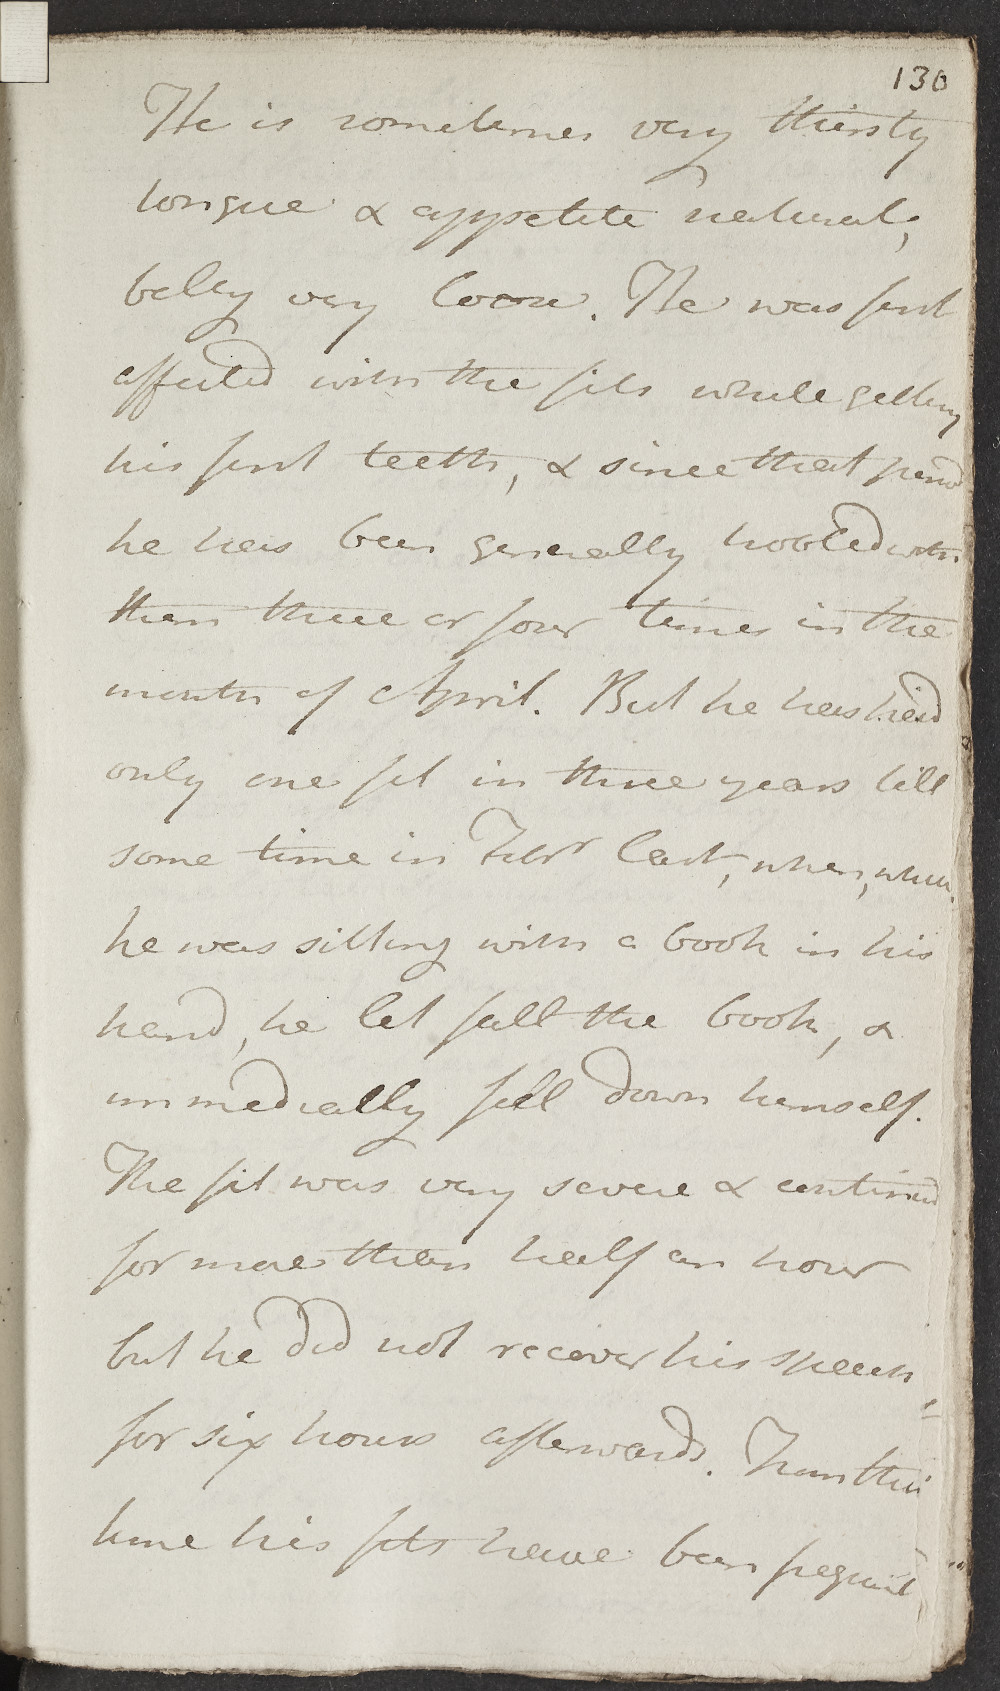 130
He is sometimes very thirsty
tongue & appetite natural;
belly very loose. He was first
affected with the fits while getting
his first teeth, & since that period
he has been generally troubled with
them three or four times in the
month of April. But he has had
only one fit in three years till
some time in Febr last, when, when
he was sitting with a book in his
hand, he let fall the book, &
immediatly fell down himself.
The fit was very severe & continued
for more than half an hour
but he did not recover his speech
for six hours afterwards. From this
time his fits have been frequent